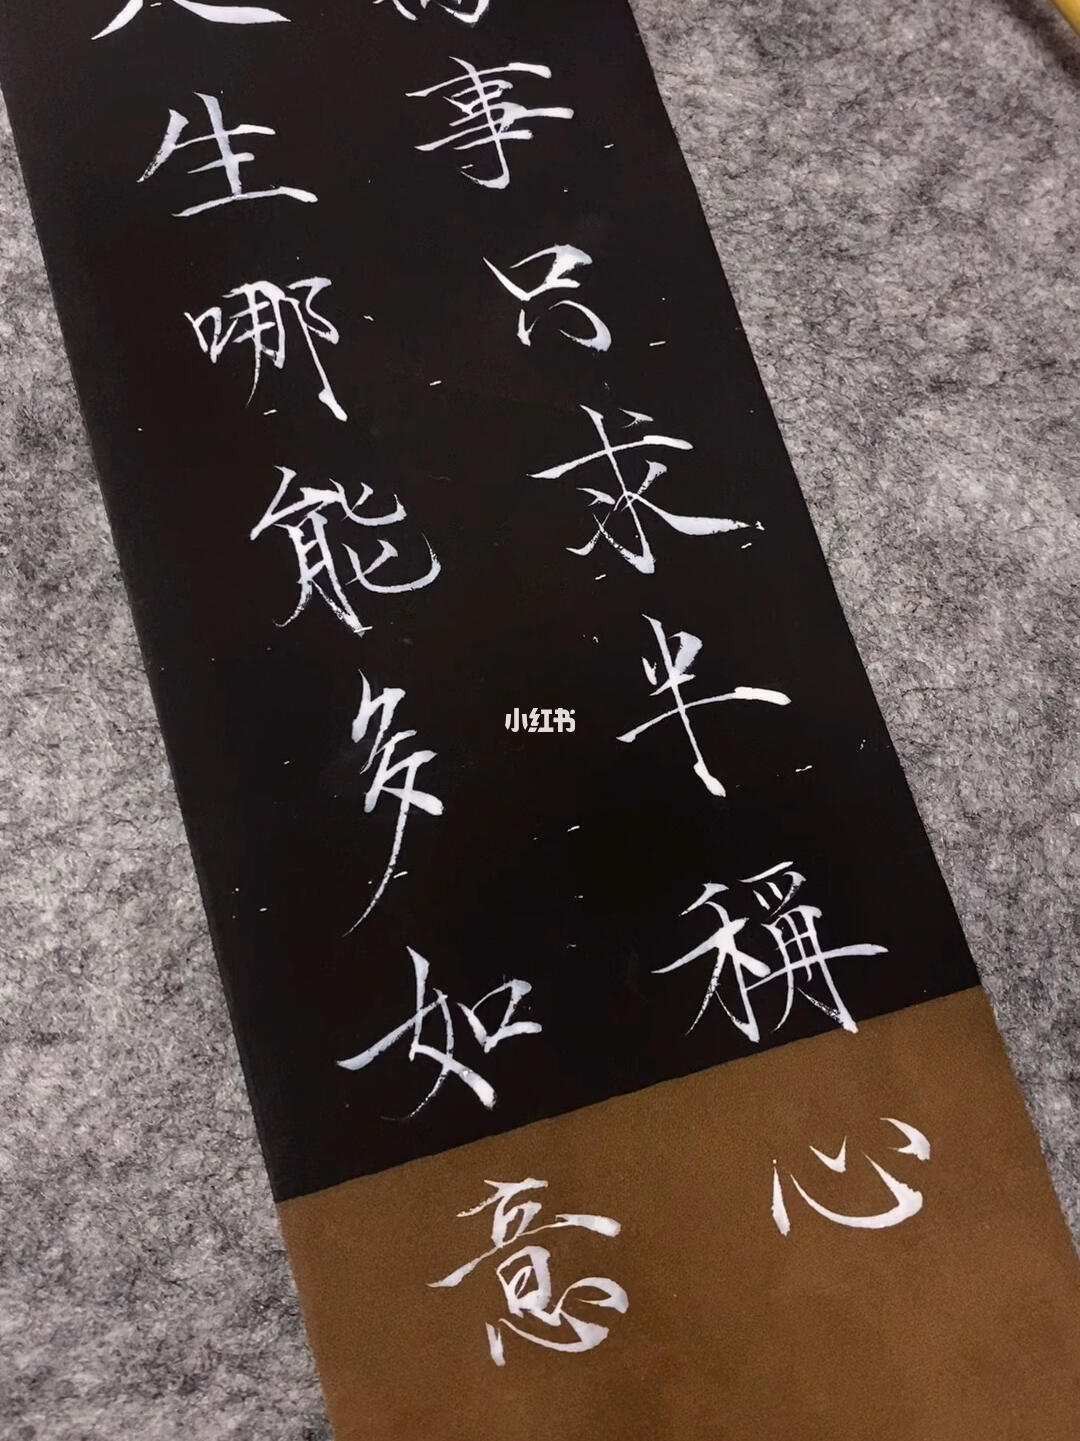 人生哪能多如意
萬事只求半稱心
小红书